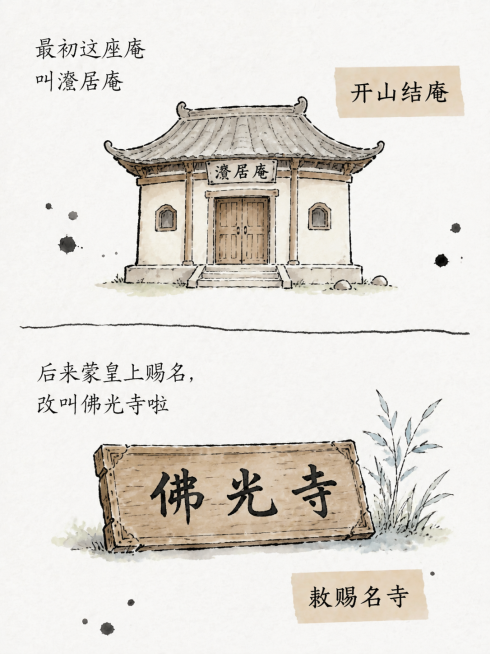 最初这座庵
叫澬居庵
开山结庵
澬居庵
后来蒙皇上赐名，
改叫佛光寺啦
佛光寺
敕赐名寺